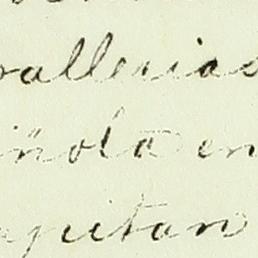 allerias
ñola en
pitan